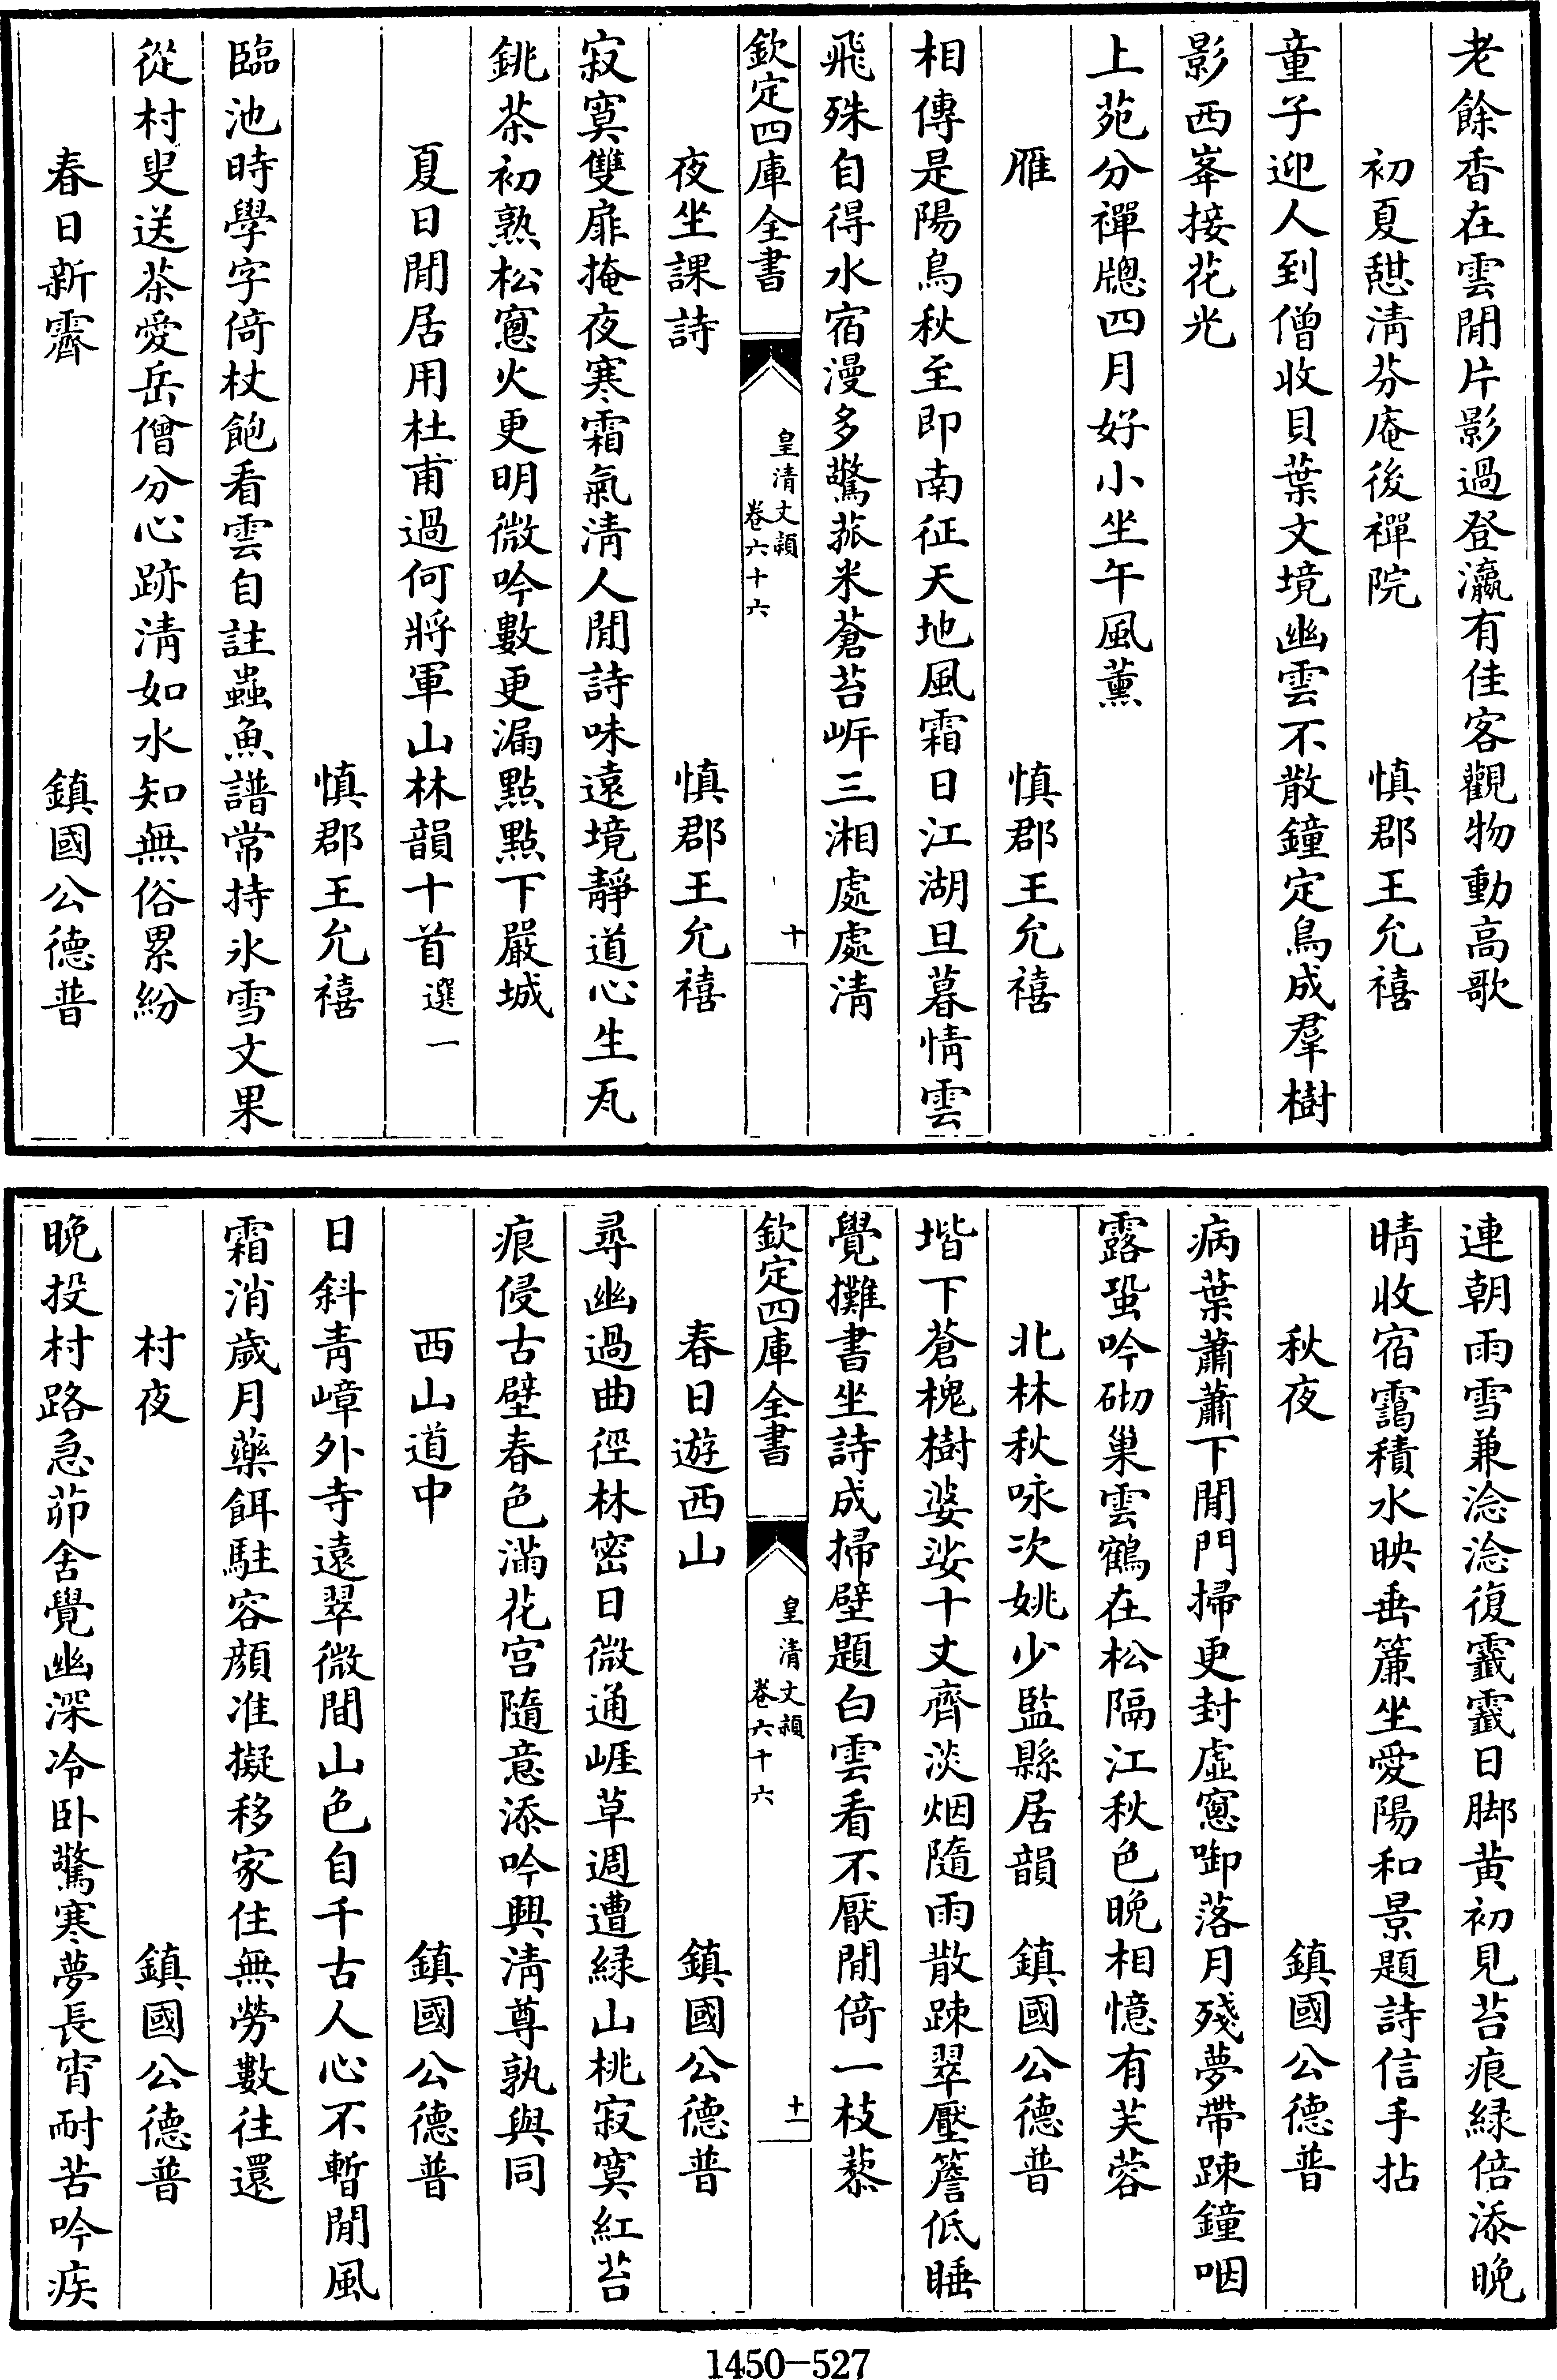 老餘香在雲閒片影過登瀛有佳客觀物動高歌
初夏憇淸芬庵後禪院　愼郡王允禧
童子迎人到僧收貝葉文境幽雲不散鐘定鳥成羣樹
影西峯接花光
上苑分禪牕四月好小坐午風薰
雁　愼郡王允禧
相傳是陽鳥秋至即南征天地風霜日江湖旦暮情雲
飛殊自得水宿漫多驚菰米蒼苔岸三湘處處淸
欽定四庫全書　皇淸文穎卷六十六　十
夜坐課詩　愼郡王允禧
寂寞雙扉掩夜寒霜氣淸人閒詩味遠境靜道心生瓦
銚茶初熟松窻火更明微吟數更漏點點下嚴城
夏日閒居用杜甫過何將軍山林韻十首選一
愼郡王允禧
臨池時學字倚杖飽看雲自註蟲魚譜常持氷雪文果
從村叟送茶愛岳僧分心跡淸如水知無俗累紛
春日新霽　鎮國公德普
連朝雨雪兼淰淰復霢霢日脚黄初見苔痕緑倍添晩
晴收宿靄積水映垂簾坐愛陽和景題詩信手拈
秋夜　鎮國公德普
病葉蕭蕭下閒門掃更封虛窻啣落月殘夢帶踈鐘咽
露蛩吟砌巢雲鶴在松隔江秋色晩相憶有芙蓉
北林秋咏次姚少監縣居韻　鎮國公德普
堦下蒼槐樹婆娑十丈齊淡烟隨雨散踈翠壓簷低睡
覺攤書坐詩成掃壁題白雲看不厭閒倚一枝藜
欽定四庫全書　皇淸文穎卷六十六　十一
春日遊西山　鎮國公德普
尋幽過曲徑林密日微通崕草週遭緑山桃寂寞紅苔
痕侵古壁春色滿花宫隨意添吟興淸尊孰與同
西山道中　鎮國公德普
日斜靑嶂外寺遠翠微間山色自千古人心不暫閒風
霜消歲月藥餌駐容顔准擬移家住無勞數往還
村夜　鎮國公德普
晩投村路急茆舍覺幽深冷卧驚寒夢長宵耐苦吟疾
1450—527